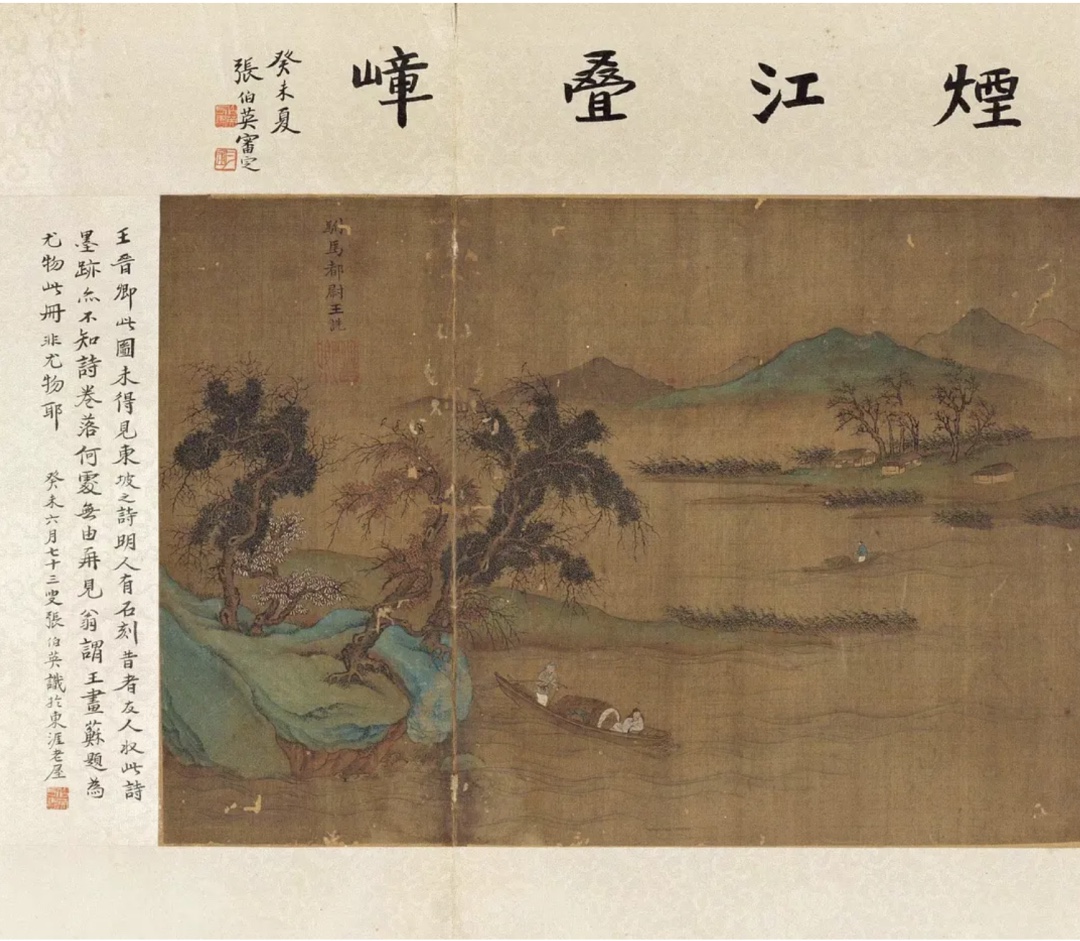 煙江叠嶂
癸未夏
張伯英審定
駙馬都尉王詵
王晉卿此圖未得見東坡之詩明人有石刻昔者友人收此詩
墨跡亦不知詩卷落何處無由再見翁謂王畫蘇題為
尤物此冊非尤物耶 癸未六月七十三叟張伯英識於東涯老屋